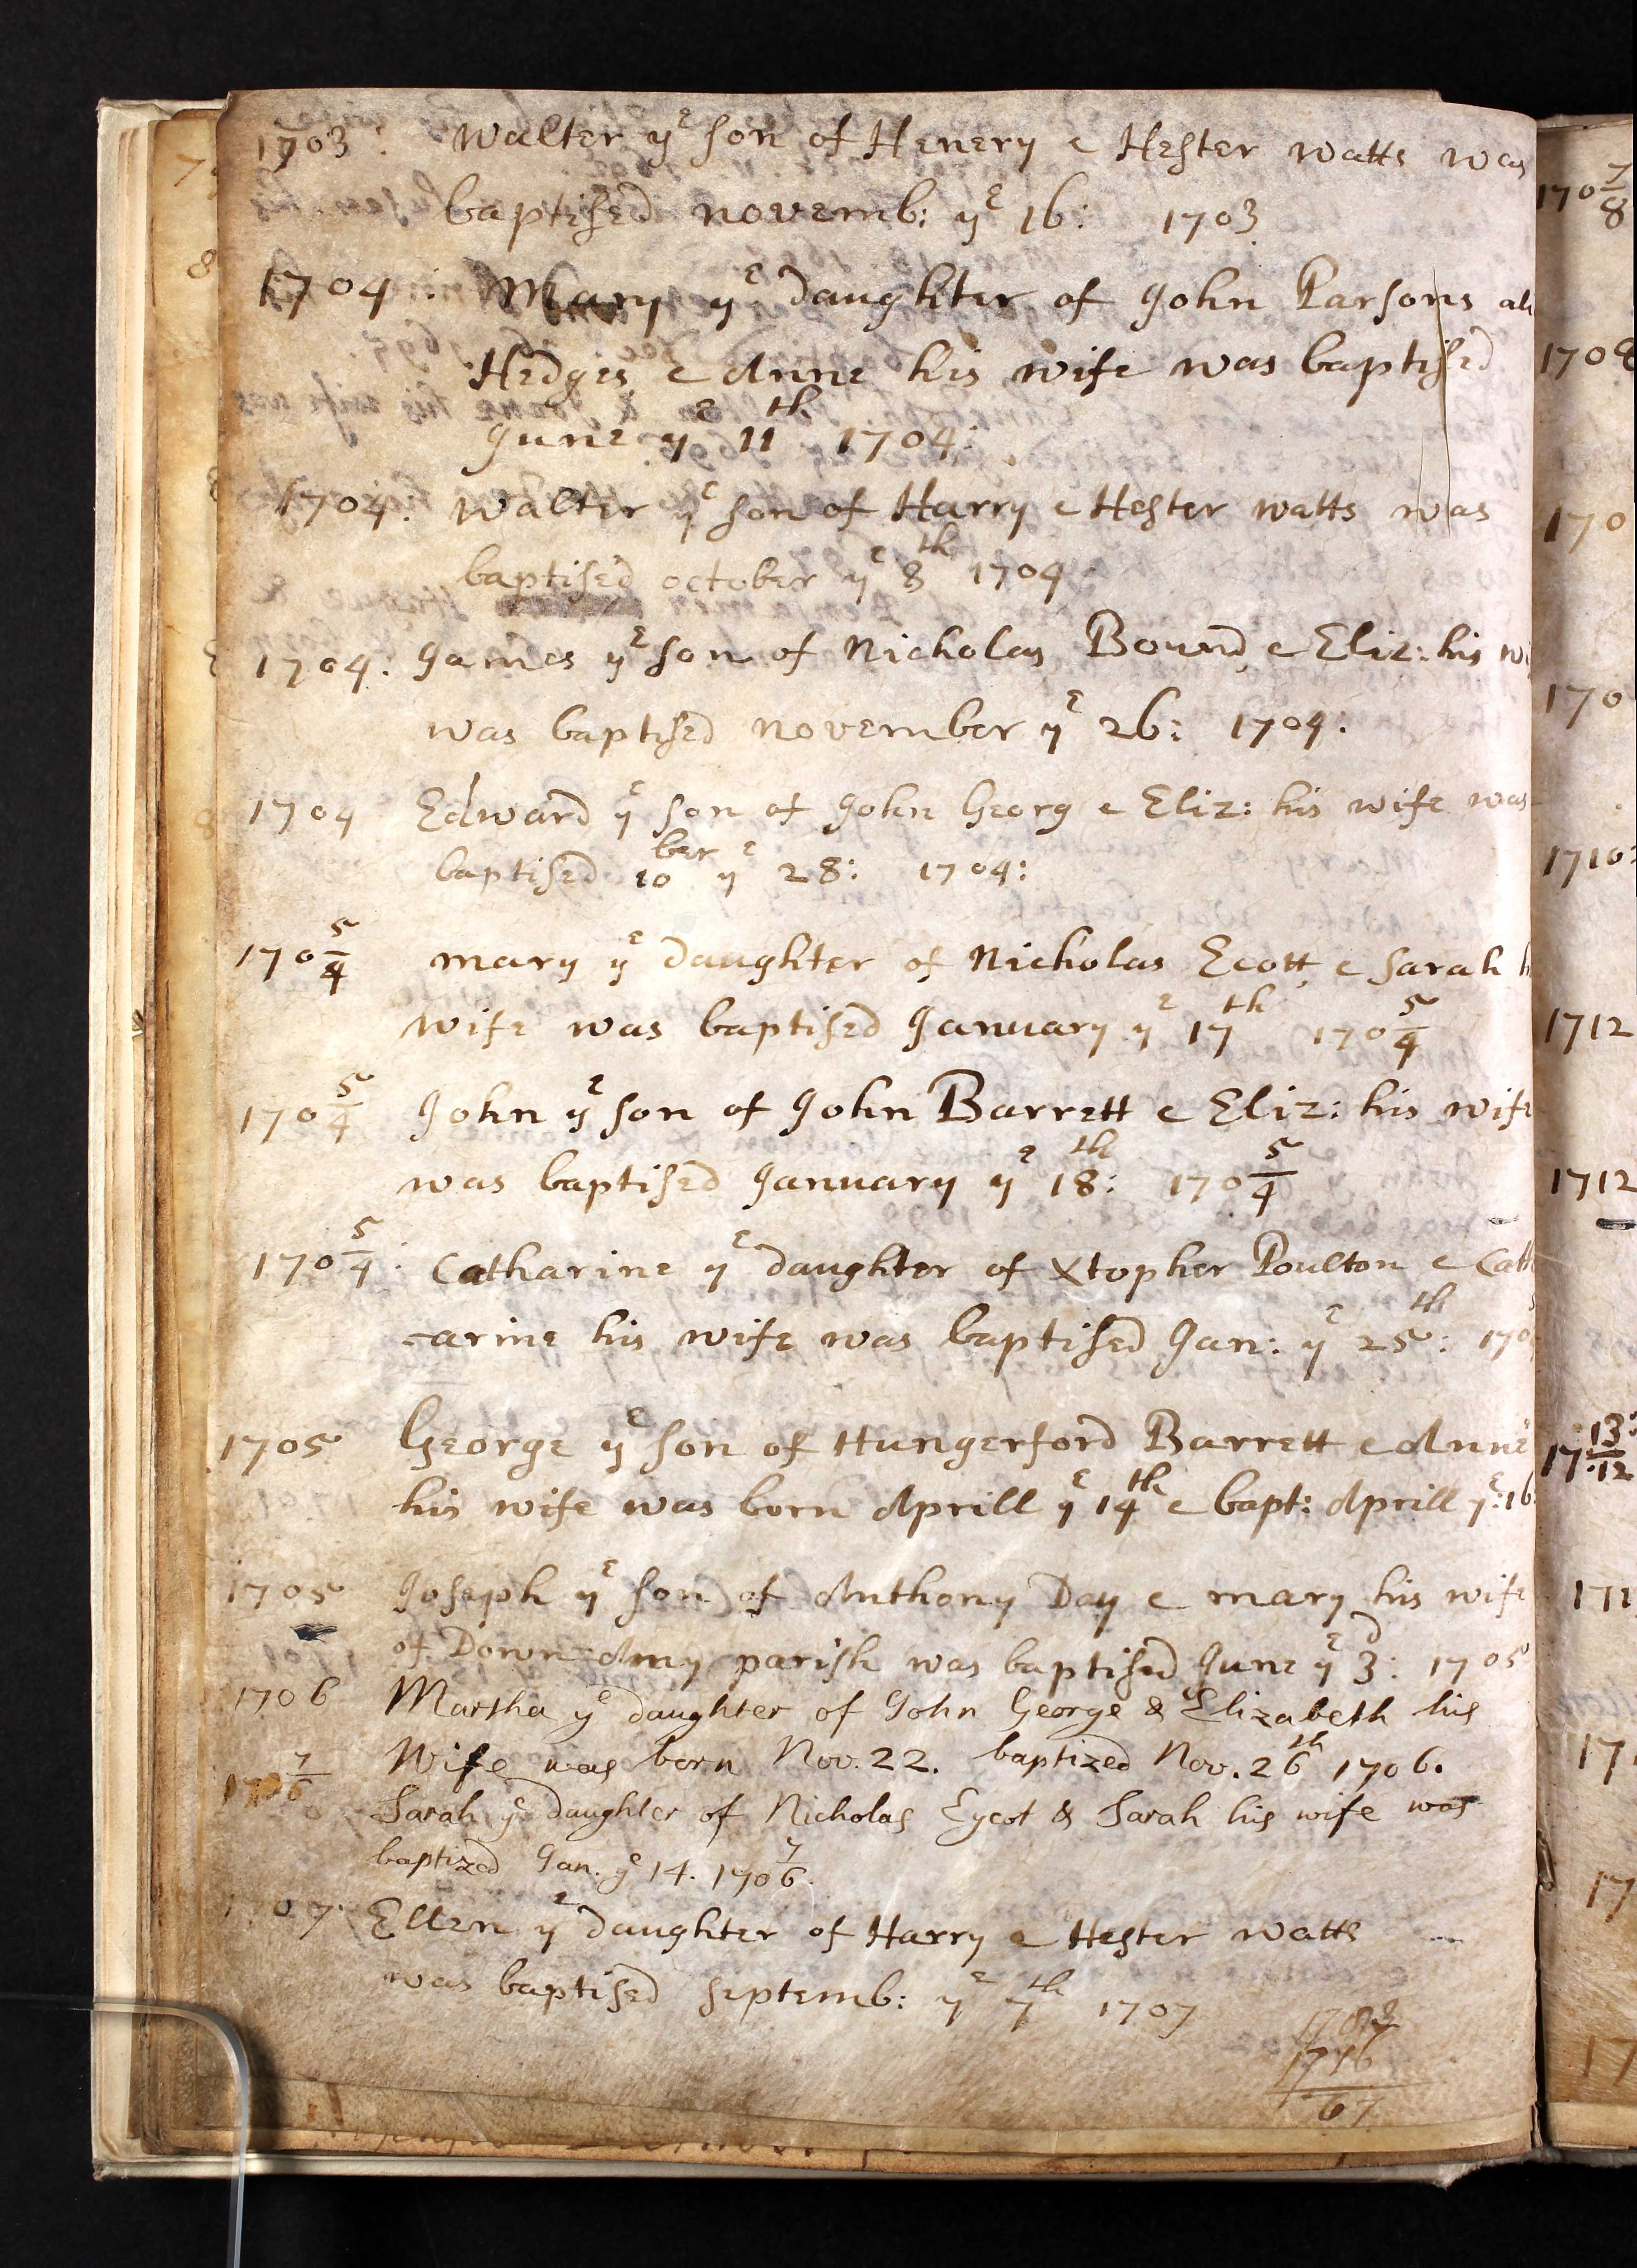 1703: Walter yͤ son of Henery & Hester Watts was
baptised novemb: yͤ 16: 1703
1704: Mary yͤ daughter of John Parsons ali
Hedges & Anne his wife was baptised
June yͤ 11th 1704:
1704. Walter yͤ son of Harry & Hester Watts was
baptised october yͤ 8th 1704
1704. James yͤ son of Nicholas Bound & Eliz: his wi
was baptised november yͤ 26: 1704:
1704 Edward yͤ son of John Georg & Eliz: his wife was
baptised 10ber yͤ 28: 1704:
170 5/4 mary yͤ daughter of Nicholas Ecott & Sarah h
wife was baptised January yͤ 17th 170 5/4
170 5/4 John yͤ son of John Barrett & Eliz: his wife
was baptised January yͤ 18th: 170 5/4
170 5/4: Catharine yͤ daughter of Xtopher Poulton & Cath
-arine his wife was baptised Jan: yͤ 25th: 170
1705 George yͤ son of Hungerford Barrett & Anne
his wife was born Aprill yͤ 14th & bapt: Aprill yͤ: 16
1705 Joseph yͤ son of Anthony Day & mary his wife
of Down=Amy parish was baptised June yͤ 3d: 1705
1706 Martha yͤ daughter of John George & Elizabeth his
Wife was born Nov. 22. baptized Nov. 26th 1706.
170 7/6 Sarah yͤ daughter of Nicholas Eycot & Sarah his wife was
baptized Jan. yͤ 14. 170 7/6.
1707. Ellen yͤ daughter of Harry & Hester Watts
was baptised septemb: yͤ 7th 1707
67
170 7/8
1708
170
170
1710:
1712
1712
17 13/12
171
171
17
17